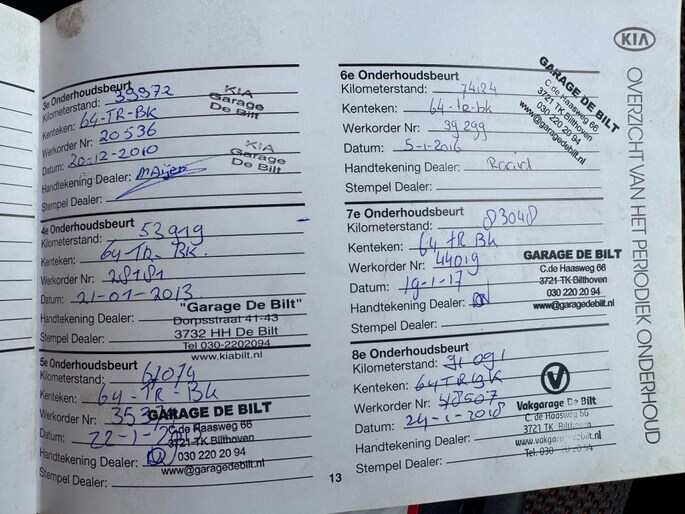 KIA
OVERZICHT VAN HET PERIODIEK ONDERHOUD
3e Onderhoudsbeurt
Kilometerstand: 39972
Kenteken: 64-TR-BK
Werkorder Nr: 20536
Datum: 20-12-2010
Handtekening Dealer:
Stempel Dealer:
KIA
Garage
De Bilt
KIA
Garage
De Bilt
4e Onderhoudsbeurt
Kilometerstand: 53919
Kenteken: 64-TR-BK.
Werkorder Nr: 28181
Datum: 21-01-2013
Handtekening Dealer:
Stempel Dealer:
"Garage De Bilt"
Dorpsstraat 41-43
3732 HH De Bilt
Tel 030-2202094
www.kiabilt.nl
5e Onderhoudsbeurt
Kilometerstand: 61074
Kenteken: 64-TR-BK
Werkorder Nr:
Datum: 22-1-
Handtekening Dealer:
Stempel Dealer:
GARAGE DE BILT
C.de Haasweg 66
3721 TK Bilthoven
030 220 20 94
www@garagedebilt.nl
6e Onderhoudsbeurt
Kilometerstand: 74124
Kenteken: 64-TR-bk
Werkorder Nr: 39299
Datum: 5-1-2016
Handtekening Dealer:
Stempel Dealer:
GARAGE DE BILT
C.de Haasweg 66
3721 TK Bilthoven
030 220 20 94
www@garagedebilt.nl
7e Onderhoudsbeurt
Kilometerstand: 83048
Kenteken: 64 TR BK
Werkorder Nr: 44019
Datum: 19-1-17
Handtekening Dealer:
Stempel Dealer:
GARAGE DE BILT
C.de Haasweg 66
3721 TK Bilthoven
030 220 20 94
www@garagedebilt.nl
8e Onderhoudsbeurt
Kilometerstand:
Kenteken: 64TRBK
Werkorder Nr: 48507
Datum: 24-1-2018
Handtekening Dealer:
Stempel Dealer:
Vakgarage De Bilt
C.de Haasweg 66
3721 TK Bilthoven
Tel. 030 220 20 94
13